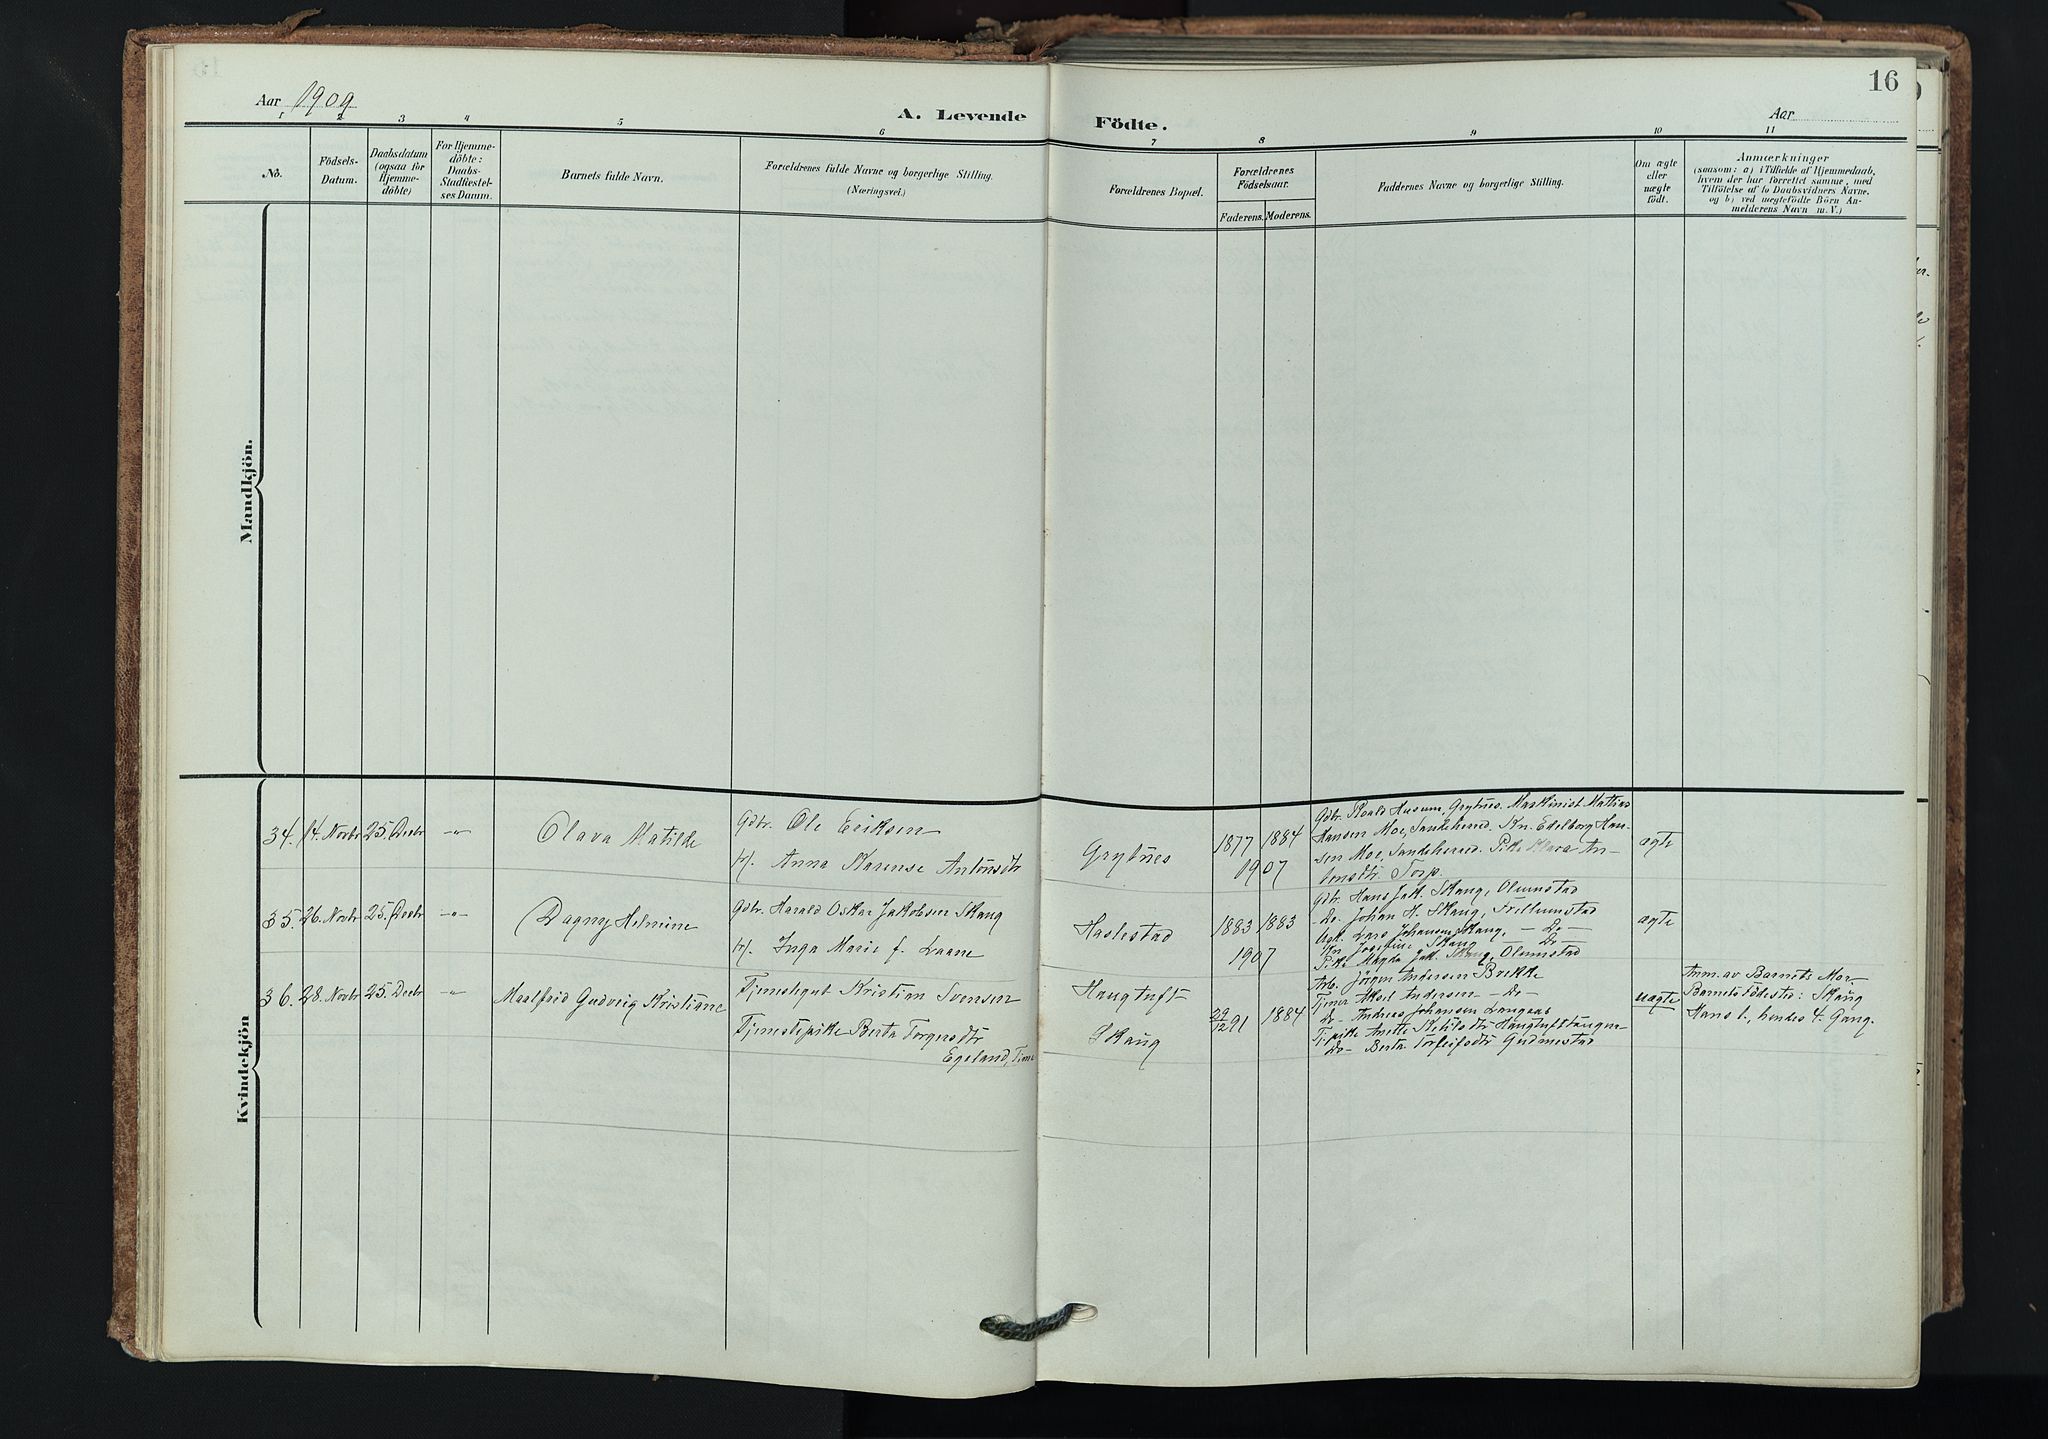 16
Aar 1909
A. Levende
Födte.
Aar
1 2 3 4 5 6 7 8 9 10 11
No.
Födsels-
Datum.
Daabsdatum
(ogsaa for
Hjemme-
döbte)
For Hjemme-
döbte:
Daabs-
Stadfæstel-
ses Datum.
Barnets fulde Navn.
Forældrenes fulde Navne og borgerlige Stilling.
(Næringsvei.)
Forældrenes Bopæl.
Forældrenes
Födselsaar.
Faderens. Moderens.
Faddernes Navne og borgerlige Stilling.
Om ægte
eller
uægte
födt.
Anmærkninger
(saasom: a) i Tilfælde af Hjemmedaab,
hvem der har forrettet samme, med
Tilföielse af to Daabsvidners Navne,
og b) ved uægtefödte Börn An-
melderens Navn m. V.)
Mandkjön.
Kvindekjön
34. 14. Novbr 25. Decbr -"-
Olava Matilde
Gdbr. Ole Eriksen
h/. Anna Karense Antonsdtr
Grytnes
1877 1884
1907
Gdbr. Roald Husum, Grytnes. Maskinist Mathias
Hansen Moe, Sandeherred. Kn. Edelborg Han-
sen Moe, Sandeherred. Pike Klara An-
tonsdtr Torp.
ægte
35. 26. Novbr 25. Decbr -"-
Dagny Helmine
Gdbr. Harald Oskar Jakobsen Skaug
h/. Inga Marie f. Laane
Haslestad
1883 1883
1907
Gdbr. Hans Jak. Skaug, Olumstad
-Do. Johan H. Skaug, Trellumstad
Ugk. Lars Johansen Skaug, -Do-
Kn Josefine Skaug -Do-
Pike Magda Jak. Skaug, Olumstad
ægte
36. 28. Novbr 25. Decbr -"-
Maalfrid Gudveig Kristiane
Tjenestegut Kristian Svensen
Tjenestepike Berta Torgersdtr
Egeland, Time
Haugtuft
Skaug
29/12 91 1884
Arb. Jörgen Andersen Brekke
Tjener Aksel Andersen -Do-
Do- Andreas Johansen Langaas
Tj.pike Anette Ketilsdtr Haugtuft
Do- Berta Torfeifsdtr Gudmestad
uægte
Anm. av Barnets Mor.
Barnets Födested: Skaug
Hans 1., hendes 4. Gang.